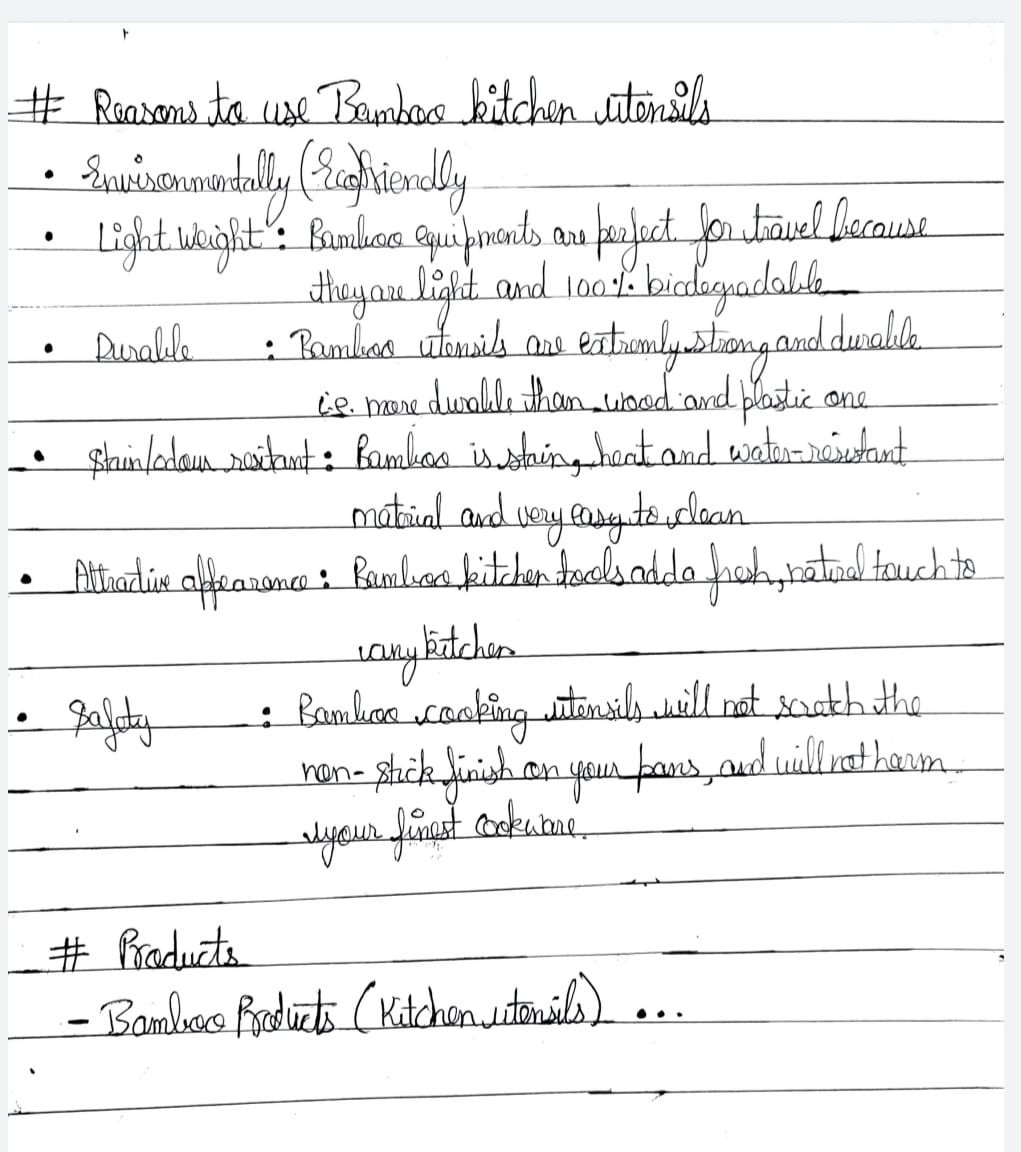 # Reasons to use Bamboo kitchen utensils
• Environmentally (Eco)friendly
• Light weight : Bamboo equipments are perfect for travel because
they are light and 100% biodegradable
• Durable : Bamboo utensils are extremly strong and durable
i.e. more durable than wood and plastic one
• Stain/odour resitant : Bamboo is staing, heat and water-resistant
matrial and very easy to clean
• Attractive appearance : Bamboo kitchen tools add a fresh, natural touch to
any kitchen
• Safety : Bamboo cooking utensils will not scratch the
non-stick finish on your pans, and will not harm
your finest cookware.
# Products
- Bamboo Products (Kitchen utensils) ...